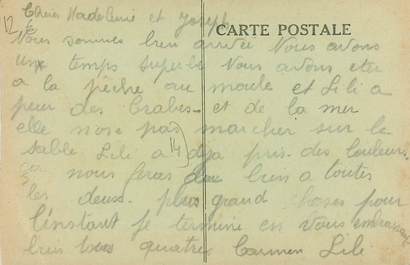 Chers Madeleine et Joseph
12
CARTE POSTALE
Nous sommes bien arrivée Nous avons
un temps superbe Nous avons eter
a la pèche au moule et Lili a
peur des Crabes et de la mer
elle nose pas marcher sur le
sable Lili a deja pris des couleurs
14
ça nous feras du bien a toutes
les deux plus grand choses pour
l'instant je termine en Vous embrassant
bien tous quatres Carmen Lili